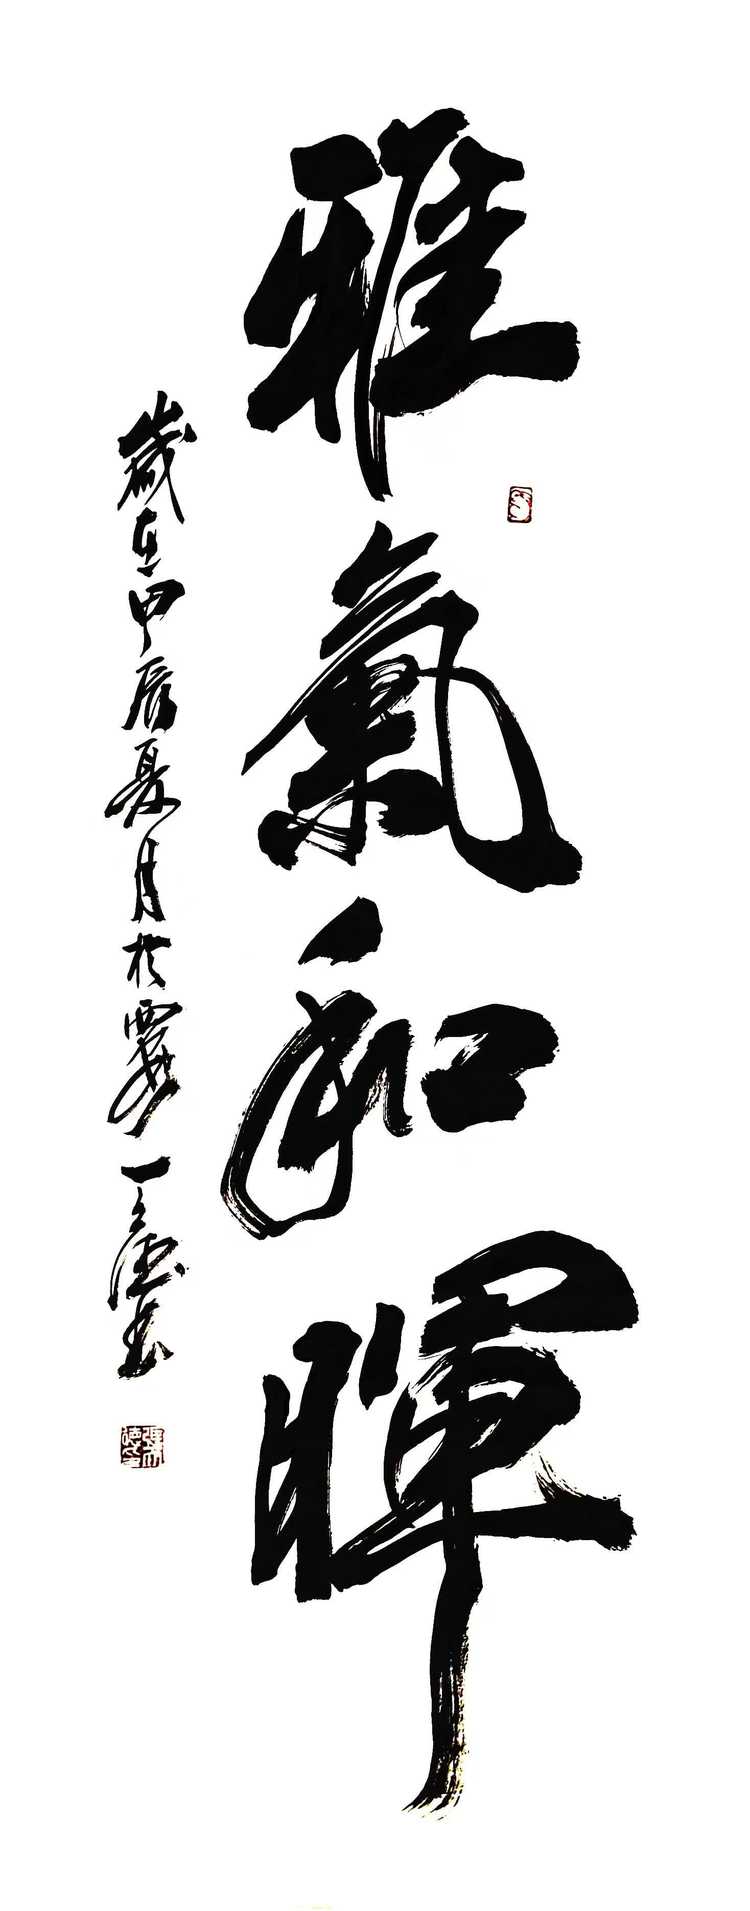 雅氣和暉
歲在甲辰夏月於